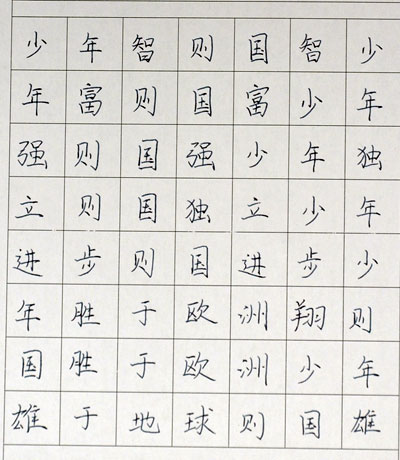 少年智则国智少
年富则国富少年
强则国强少年独
立则国独立少年
进步则国进步少
年胜于欧洲翔则
国胜于欧洲少年
雄于地球则国雄